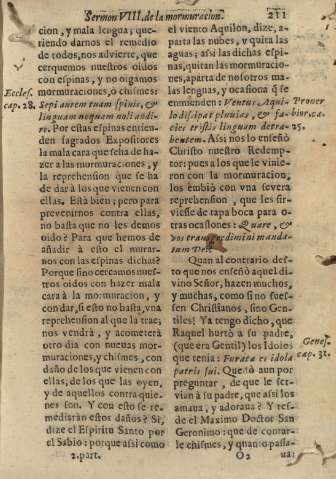 Sermon VIII. de la mormuracion. 211
cion, y mala lengua; que-
riendo darnos el remedio
de todos, nos advierte, que
cerquemos nuestros oidos
con espinas, y no oigamos
mormuraciones, ò chismes:
Eccles. cap. 28.
Sepi aurem tuam spinis, &
linguam nequam noli audi-
re. Por estas espinas entien-
den sagrados Expositores
la mala cara que se ha de ha-
zer a las mormuraciones, y
la reprehension que se ha
de dar à los que vienen con
ellas. Està bien; pero para
prevenirnos contra ellas,
no basta que no les demos
oido? Para que hemos de
añadir à esto el murar-
nos con las espinas dichas?
Porque sino cercamos nues-
tros oidos con hazer mala
cara à la mormuracion, y
con dar, si esto no basta, vna
reprehension al que la trae;
nos vendrà, y acometerà
otro dia con nuevas mor-
muraciones, y chismes, con
daño de los que vienen con
ellas, de los que las oyen,
y de aquellos contra quie-
nes son. Y con esto se re-
mediaràn estos daños? Si,
dize el Espiritu Santo por
el Sabio: porque assi como
2. part.
el viento Aquilon, dize, a-
parta las nubes, y quita las
aguas; assi las dichas espi-
nas, quitan las mormuracio-
nes, aparta de nosotros ma-
las lenguas, y ocasiona q̃ se
enmienden: Ventus Aqui-
Prover
lo disipat pluvias, & fa-
bior. ca
cies tristis linguam detra-
25.
hentem. Assi nos lo enseñò
Christo nuestro Redemp-
tor: pues a los que le vinie-
ron con la mormuracion,
los embiò con vna severa
reprehension, que les sir-
viesse de tapa boca para o-
tras ocasiones: Quare, &
vos transgredimini manda-
tum Dei?
Quan al contrario des-
to que nos enseñò aquel di-
vino Señor, hazen muchos,
y muchas, como si no fues-
sen Christianos, sino Gen-
tiles! Ya tengo dicho, que
Raquel hurtò a su padre,
Genes.
(que era Gentil) los Idolos
cap. 31.
que tenia: Furata est idola
patris sui. Quedò aun por
preguntar, de que le ser-
vian à su padre, que assi los
amaua, y adoraua? Y res-
de el Maximo Doctor San
Geronimo: que de contar-
le chismes, y quanto passa-
O 2 ua: